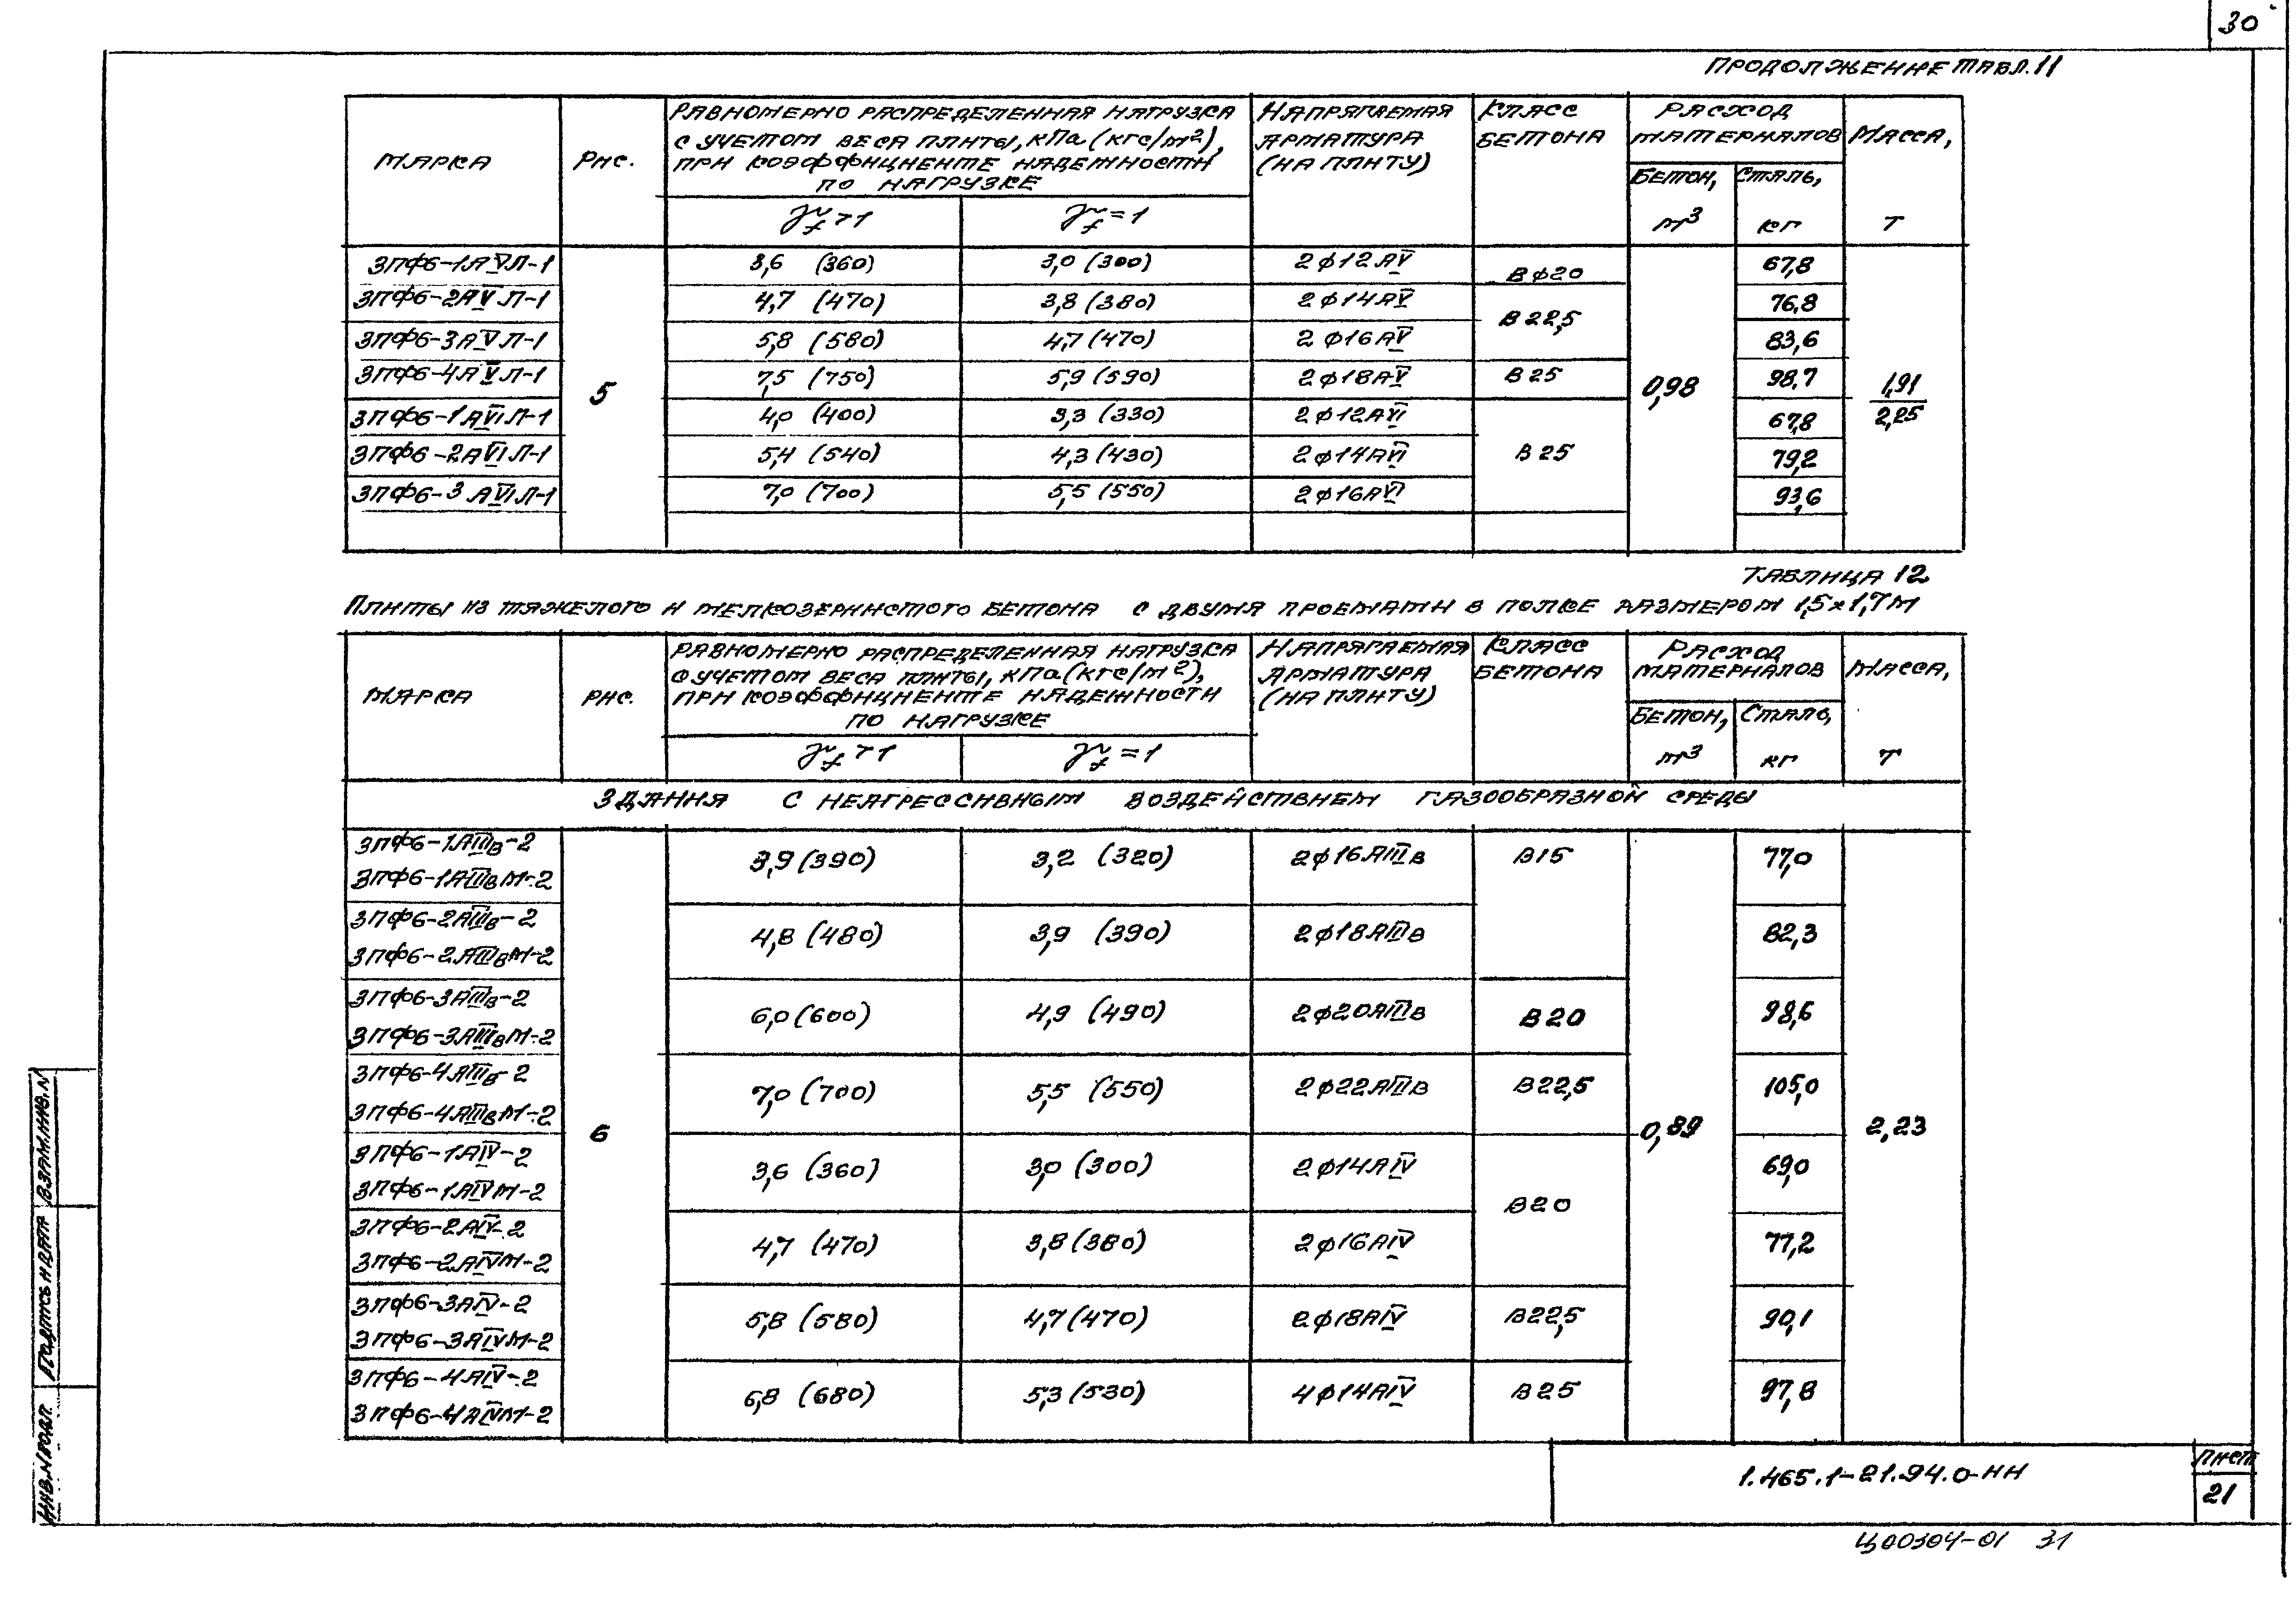 30
Продолжение табл. 11
Марка
Рис.
Равномерно распределенная нагрузка
с учетом веса плиты, кПа (кгс/м²),
при коэффициенте надежности
по нагрузке
γf >1
γf =1
Напрягаемая
арматура
(на плиту)
Класс
бетона
Расход
материалов
Бетон,
м³
Сталь,
кг
Масса,
т
3ПФ6-1АVЛ-1 3,6 (360) 3,0 (300) 2ф12АV Вф20 67,8
3ПФ6-2АVЛ-1 4,7 (470) 3,8 (380) 2ф14АV В22,5 76,8
3ПФ6-3АVЛ-1 5,8 (580) 4,7 (470) 2ф16АV 83,6
3ПФ6-4АVЛ-1 5 7,5 (750) 5,9 (590) 2ф18АV В25 0,98 98,7 1,91
3ПФ6-1АVIЛ-1 4,0 (400) 3,3 (330) 2ф12АVI 67,8 2,25
3ПФ6-2АVIЛ-1 5,4 (540) 4,3 (430) 2ф14АVI В25 79,2
3ПФ6-3АVIЛ-1 7,0 (700) 5,5 (550) 2ф16АVI 93,6
Таблица 12
Плиты из тяжелого и мелкозернистого бетона с двумя проемами в полке размером 1,5х1,7м
Марка
Рис.
Равномерно распределенная нагрузка
с учетом веса плиты, кПа (кгс/м²),
при коэффициенте надежности
по нагрузке
γf >1
γf =1
Напрягаемая
арматура
(на плиту)
Класс
бетона
Расход
материалов
Бетон,
м³
Сталь,
кг
Масса,
т
Здания с неагрессивным воздействием газообразной среды
3ПФ6-1АIIIв-2
3,9 (390) 3,2 (320) 2ф16АIIIв В15 77,0
3ПФ6-1АIIIвМ-2
3ПФ6-2АIIIв-2
4,8 (480) 3,9 (390) 2ф18АIIIв 82,3
3ПФ6-2АIIIвМ-2
3ПФ6-3АIIIв-2
6,0 (600) 4,9 (490) 2ф20АIIIв В20 98,6
3ПФ6-3АIIIвМ-2
3ПФ6-4АIIIв-2
7,0 (700) 5,5 (550) 2ф22АIIIв В22,5 105,0
3ПФ6-4АIIIвМ-2
6 0,89 2,23
3ПФ6-1АIV-2
3,6 (360) 3,0 (300) 2ф14АIV 69,0
3ПФ6-1АIVМ-2
В20
3ПФ6-2АIV-2
4,7 (470) 3,8 (380) 2ф16АIV 77,2
3ПФ6-2АIVМ-2
3ПФ6-3АIV-2
5,8 (580) 4,7 (470) 2ф18АIV В22,5 90,1
3ПФ6-3АIVМ-2
3ПФ6-4АIV-2
6,8 (680) 5,3 (530) 4ф14АIV В25 97,8
3ПФ6-4АIVМ-2
Инв.№подл. Подпись и дата Взам.инв.№
1.465.1-21.94.0-НИ
Лист
21
Ц00304-01 31